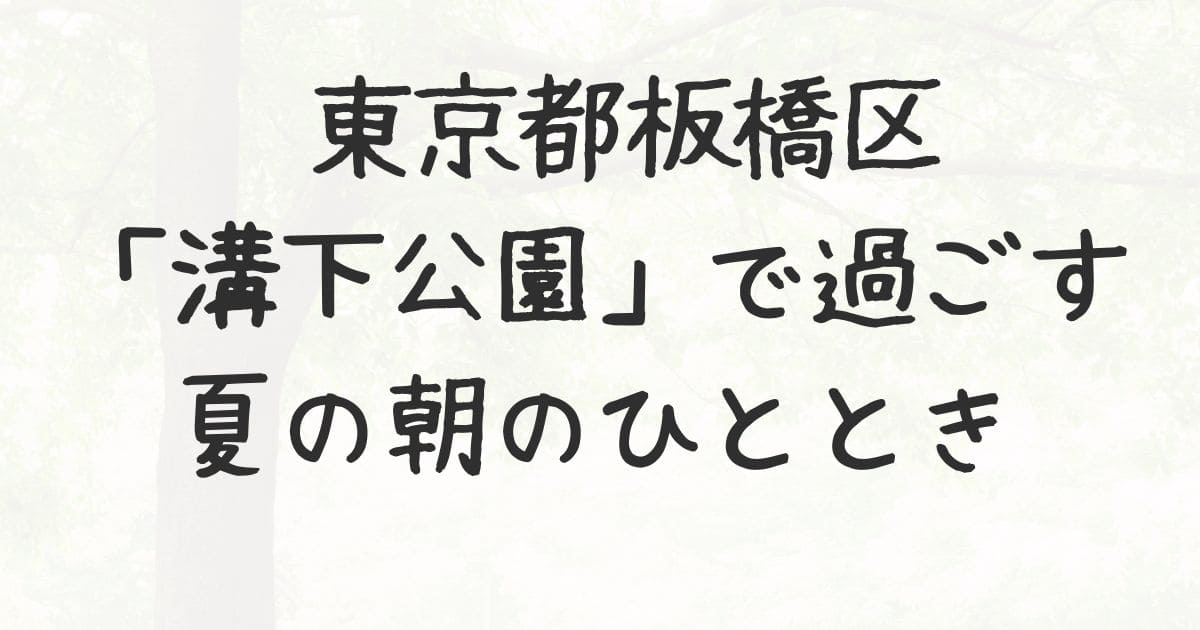 東京都板橋区
「溝下公園」で過ごす
夏の朝のひととき